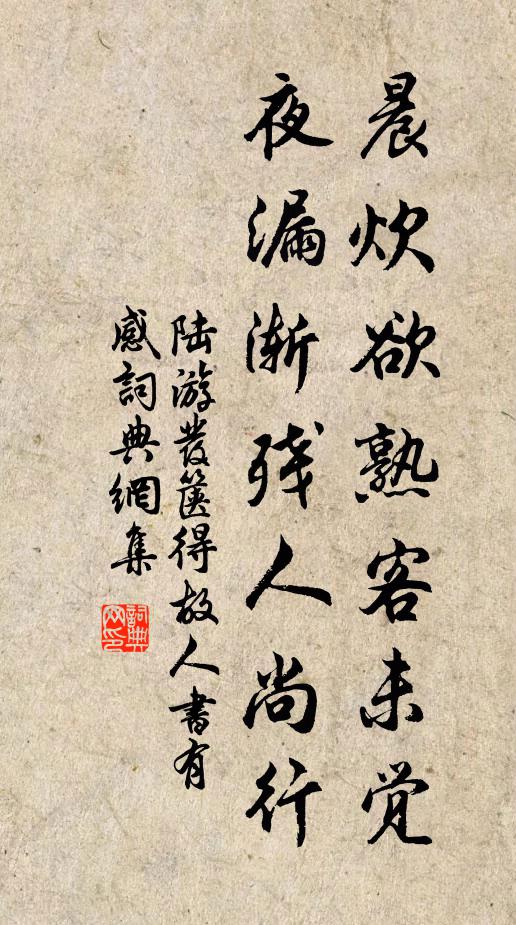 晨炊欲熟客未觉
夜漏渐残人尚行
陆游發箧得故人書有
感詞典網集
詞典
网印